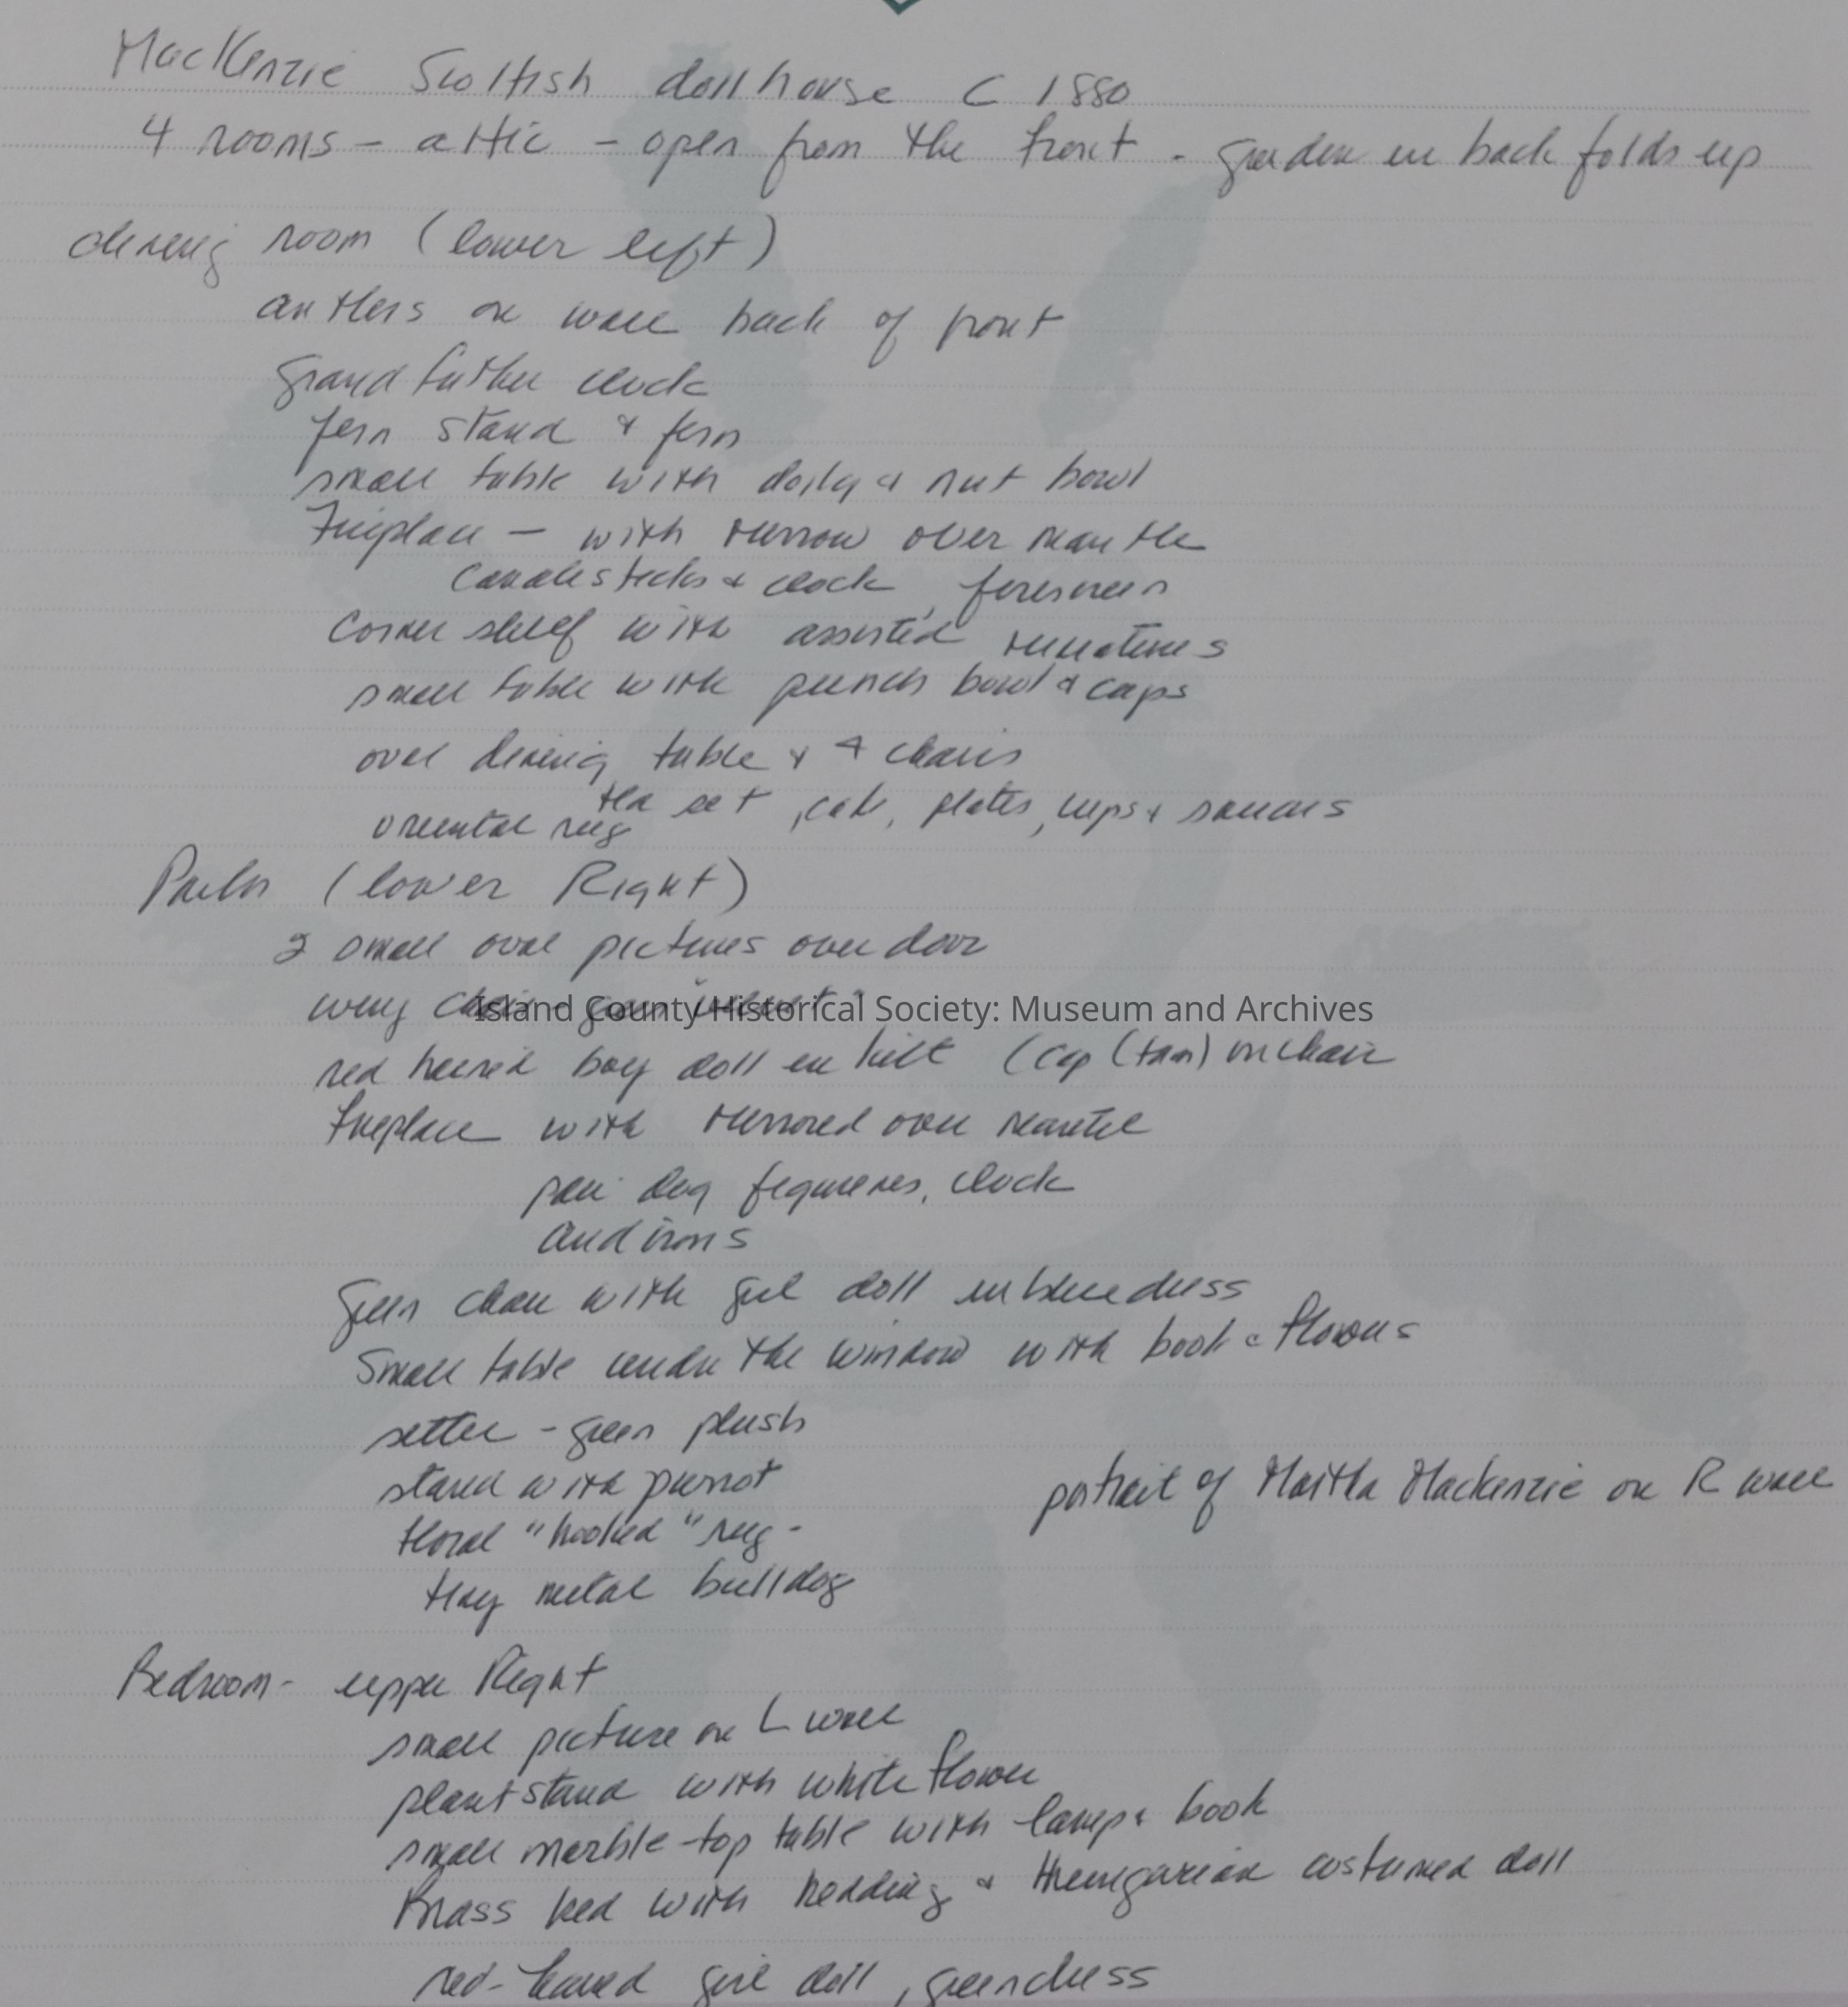 MacKenzie Scottish doll house C 1880
4 rooms - attic - open from the front - garden in back folds up
dining room (lower left)
antlers on wall back of front
Grandfather clock
fern stand & fern
small table with doily & nut bowl
Fireplace - with mirrow over mantle
Candlesticks & clock, firescreen
Corner shelf with assorted miniatures
small table with punch bowl & cups
oval dining table & 4 chairs
tea set, cake, plates, cups & saucers
oriental rug
Parlor (lower Right)
2 small oval pictures over door
wing chair - green "velvet"
red haired boy doll in kilt (cap (tam) on chair
Fireplace with mirrored over mantel
pair dog figurines, clock
andirons
Green chair with girl doll in blue dress
Small table under the window with book & flowers
settee - green plush
stand with parrot
portrait of Martha Mackenzie on R wall
floral "hooked" rug -
tiny metal bulldog
Bedroom - upper Right
small picture on L wall
plant stand with white flower
small marble-top table with lamp & book
Brass bed with bedding & Hungarian costumed doll
red-haired girl doll, green dress
Island County Historical Society: Museum and Archives